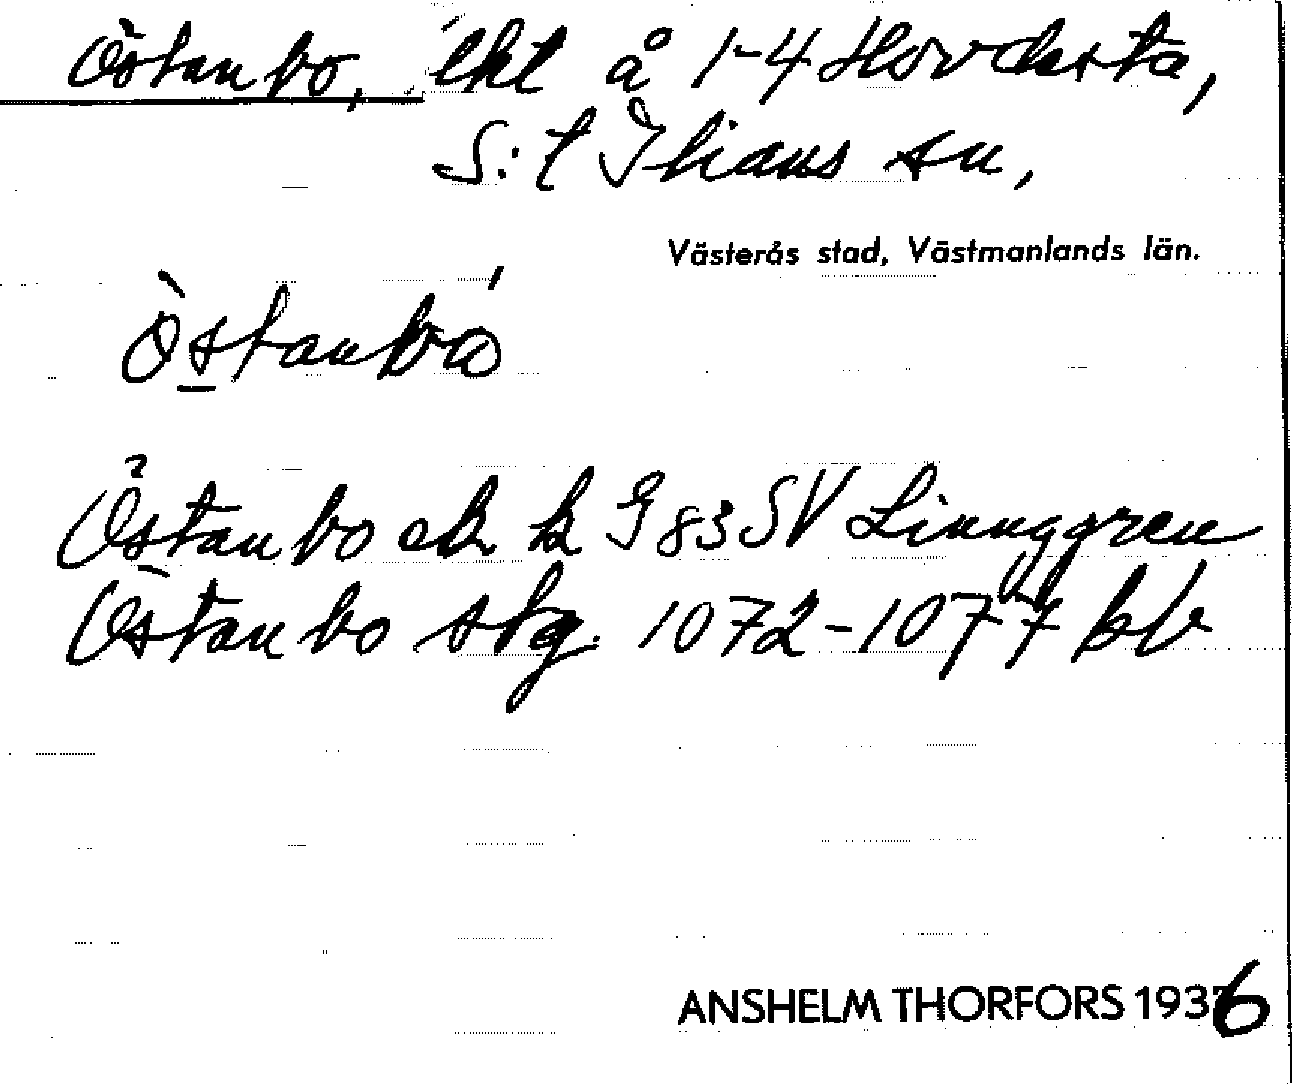 Östanbo, lht å 1-4 Hovdesta,
S:t Ilians sn,
Västerås stad, Västmanlands län.
Östanbo
Östanbo ek k G 83 SV Linnggren
Östanbo stg. 1072-1077 kb
ANSHELM THORFORS 1936